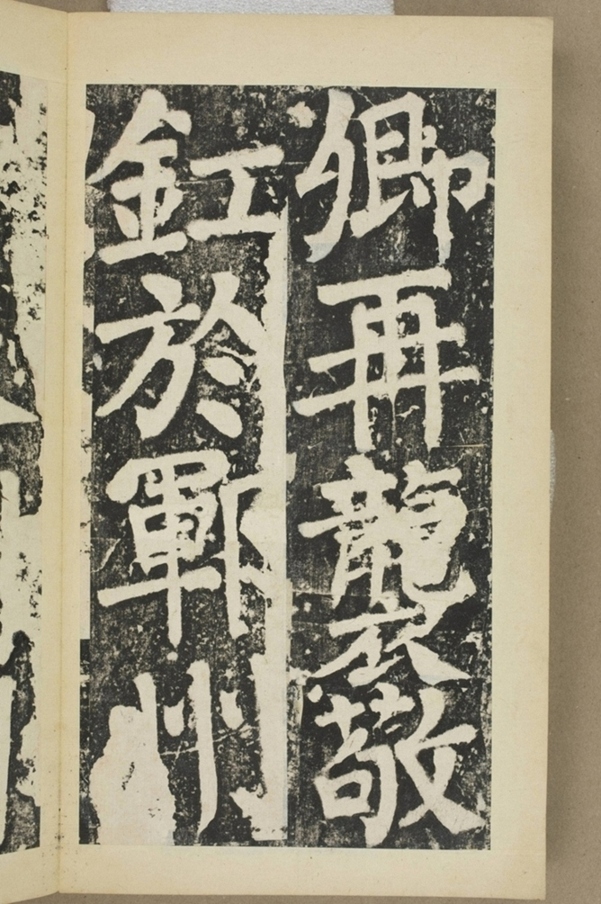 卿再襲敬
釭於鄆州